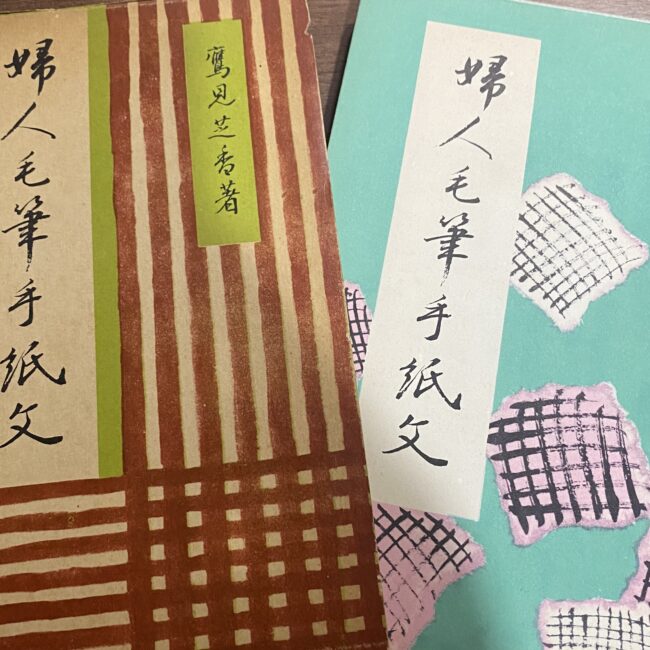 婦人毛筆手紙文
鷹見芝香著
婦人毛筆手紙文